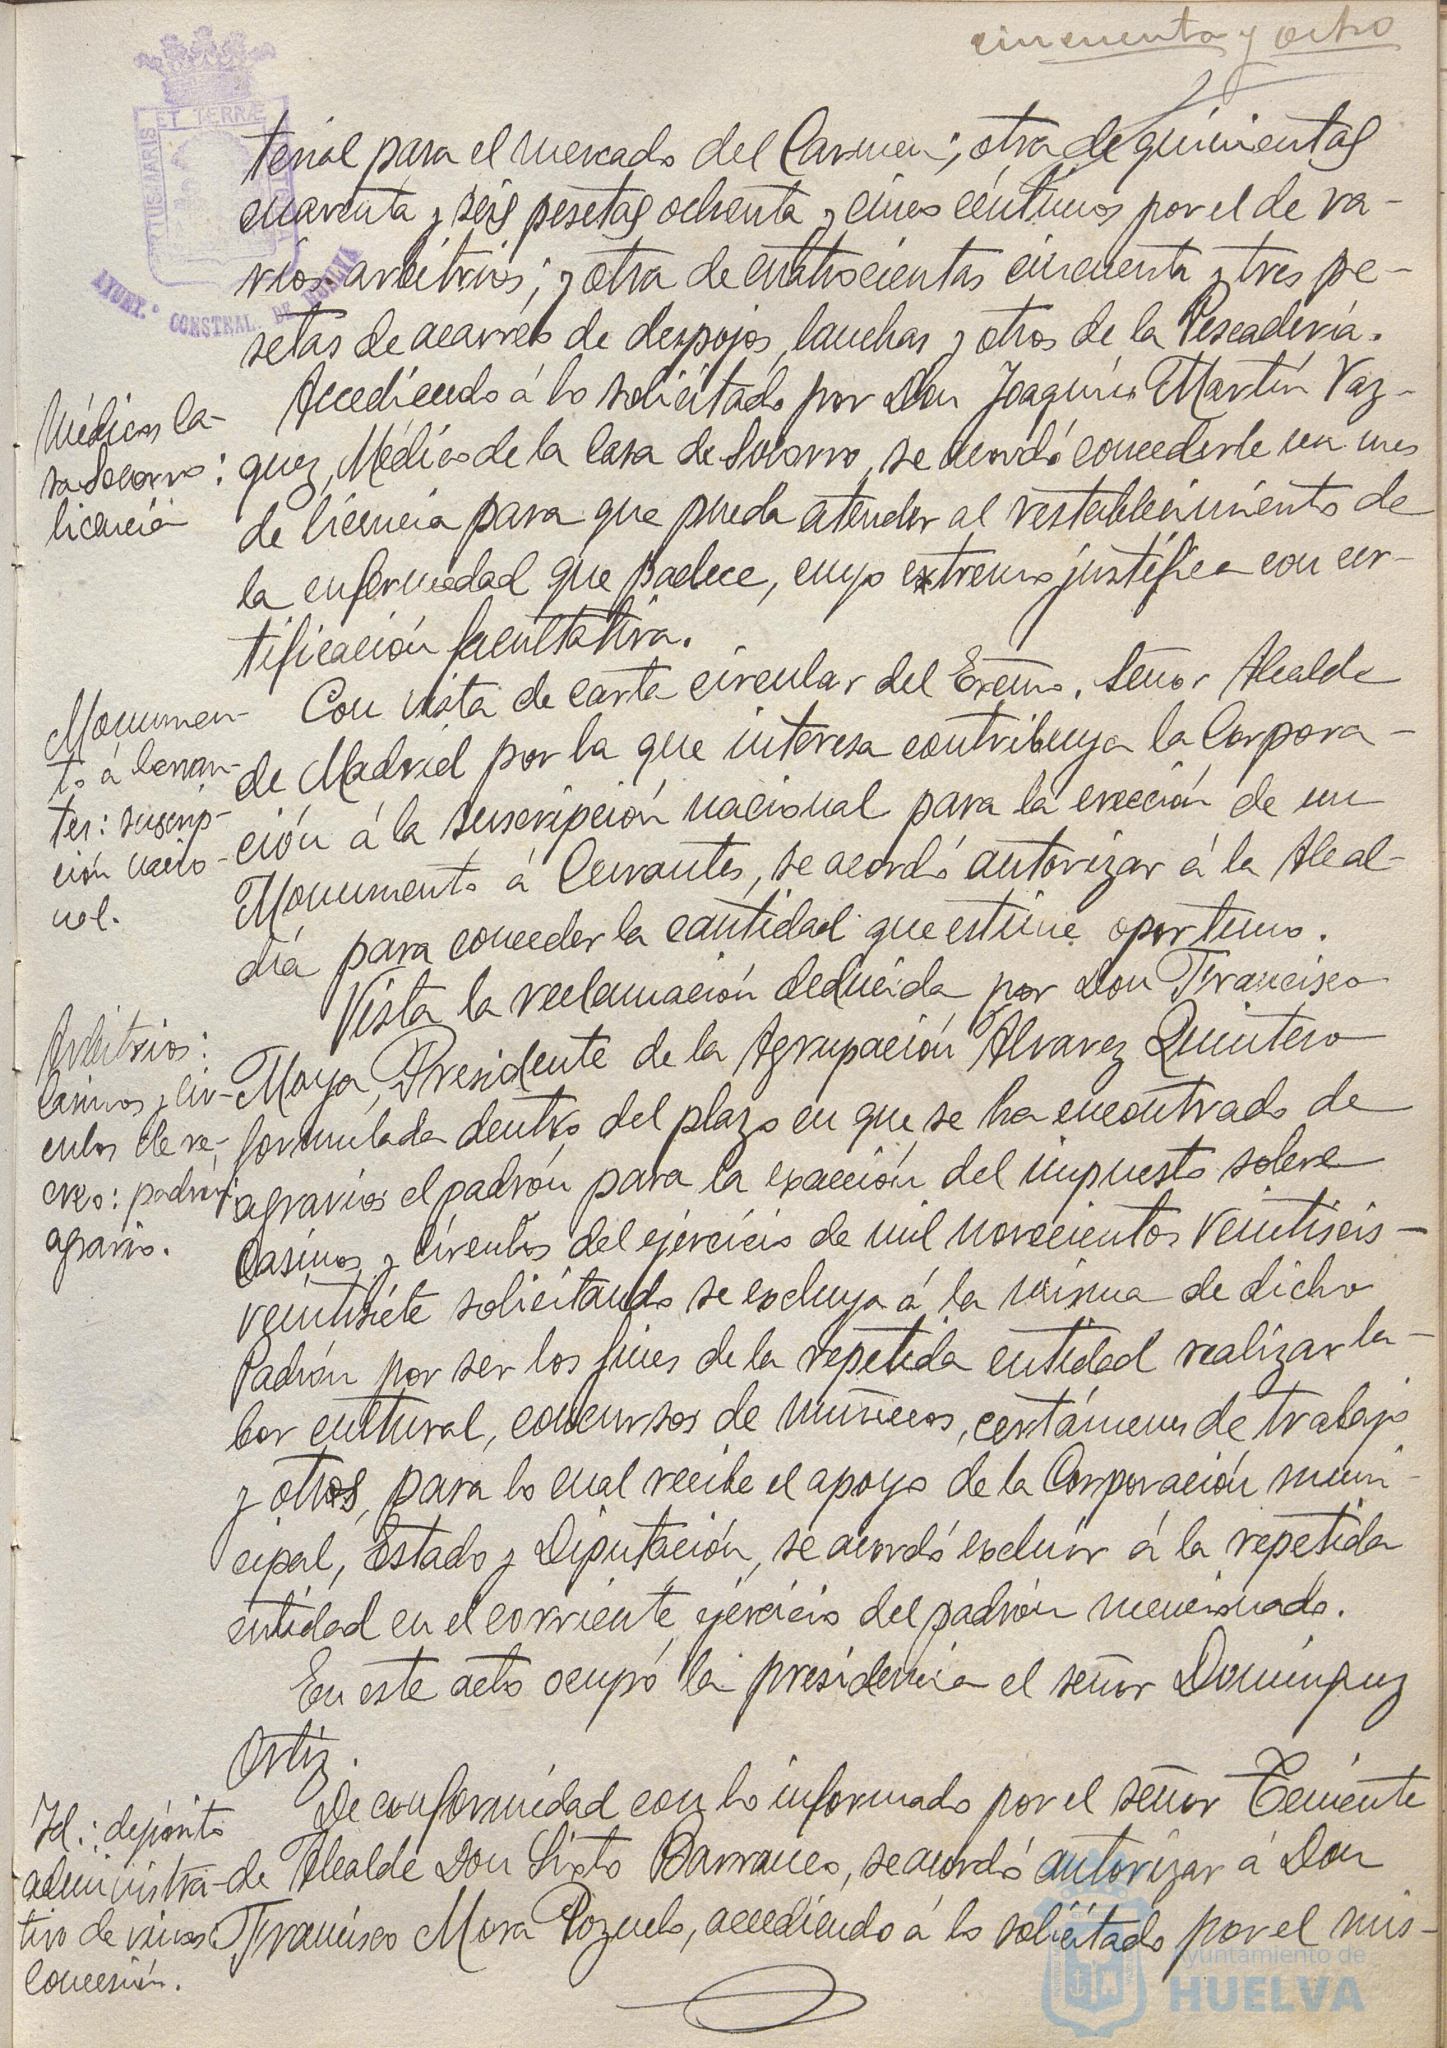 cincuenta y ocho
terial para el mercado del Carmen; otra de quinientas
cuarenta y seis pesetas ochenta y cinco céntimos por el de va-
rios arbitrios; y otra de cuatrocientas cincuenta y tres pe-
setas de acarreo de despojos, lanchas y otros de la Pescadería.
Médicos Ca-
sa Socorro:
licencia
Accediendo á lo solicitado por Don Joaquín Martín Vaz-
quez, Médico de la Casa de Socorro, se acordó concederle un mes
de licencia para que pueda atender al restablecimiento de
la enfermedad que padece, cuyo extremo justifica con cer-
tificación facultativa.
Monumen-
to á Cervan-
tes: suscrip-
ción nacio-
nal.
Con vista de carta circular del Excmo. Señor Alcalde
de Madrid por la que interesa contribuya la Corpora-
ción á la suscripción nacional para la erección de un
Monumento á Cervantes, se acordó autorizar á la Alcal-
día para conceder la cantidad que estime oportuno.
Arbitrios:
Casinos y Cír-
culos de re-
creo: padrón
agravio.
Vista la reclamación deducida por Don Francisco
Moya, Presidente de la Agrupación Alvarez Quintero
formulada dentro del plazo en que se ha encontrado de
agravios el padrón para la exacción del impuesto sobre
Casinos y Círculos del ejercicio de mil novecientos veintiseis-
veintisiete solicitando se excluya á la misma de dicho
Padrón por ser los fines de la repetida entidad realizar la-
bor cultural, concursos de muñecos, certámenes de trabajo
y otros, para lo cual recibe el apoyo de la Corporación muni-
cipal, Estado y Diputación, se acordó excluir á la repetida
entidad en el corriente ejercicio del padrón mencionado.
En este acto ocupó la presidencia el señor Domínguez
Ortiz.
Id.: depósito
administra-
tivo de vinos:
Concesión.
De conformidad con lo informado por el señor Teniente
de Alcalde Don Sixto Barranco, se acordó autorizar á Don
Francisco Mora Pozuelo, accediendo á lo solicitado por el mis-
ET TERRÆ
AYUNT.º CONSTNAL. DE HUELVA
Ayuntamiento de
HUELVA